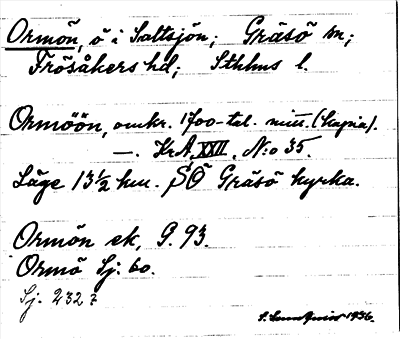 Ormön, ö i Saltsjön; Gräsö sn;
Frösåkers hd; Sthlms l.
Ormöön, omkr. 1700-tal. mitt. (kopia).
—. KrA, XXII, N:o 35.
Läge 13½ km. SÖ Gräsö kyrka.
Ormön ek, G. 93.
Ormö Sj: 60.
Sj. 232 ?
1936.